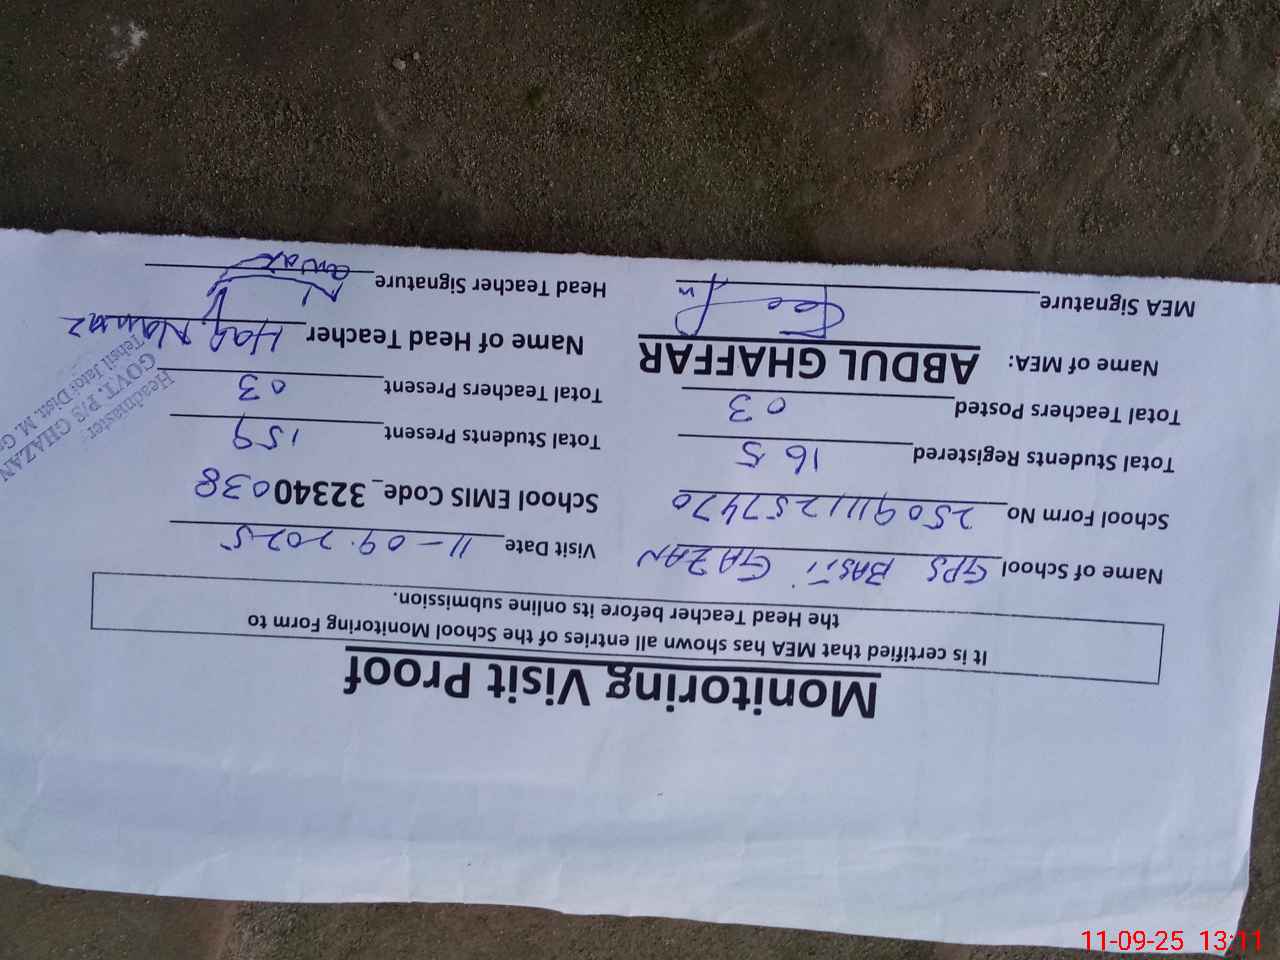 Monitoring Visit Proof
It is certified that MEA has shown all entries of the School Monitoring Form to
the Head Teacher before its online submission.
Name of School GPS BASTI GAZAN Visit Date 11-09.2025
School Form No 250911257470 School EMIS Code_ 32340038
Total Students Registered 165 Total Students Present 159
Total Teachers Posted 03 Total Teachers Present 03
Name of MEA: ABDUL GHAFFAR Name of Head Teacher Haq Nawaz
MEA Signature Head Teacher Signature
Headmaster
GOVT. P/S GHAZAN
Tehsil Jatoi Distt. M. G
11-09-25 13:11